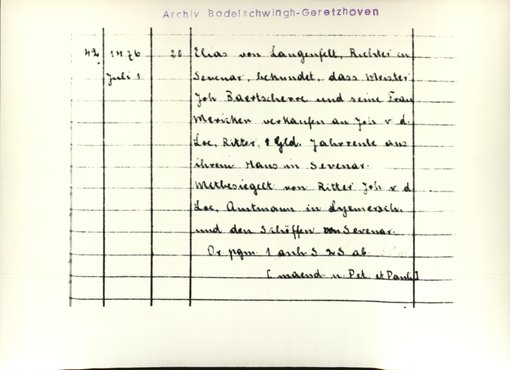 Archiv Bodelschwingh-Geretzhoven
42 1476 20 Elias von Langenfelt, Richter in
Juli 1 Sevenar, bekundet, dass Meister
Joh Baertscherre und seine Frau
Meriken verkaufen an Joh v. d.
Loe, Ritter, 1 Gld. Jahrrente aus
ihrem Haus in Sevenar.
Mitbesiegelt von Ritter Joh v d
Loe, Amtmann in Lyemersch,
und den Schöffen von Sevenar.
Or pgm 1 anh S 2 S ab
[maend n Pet. et Pauli]